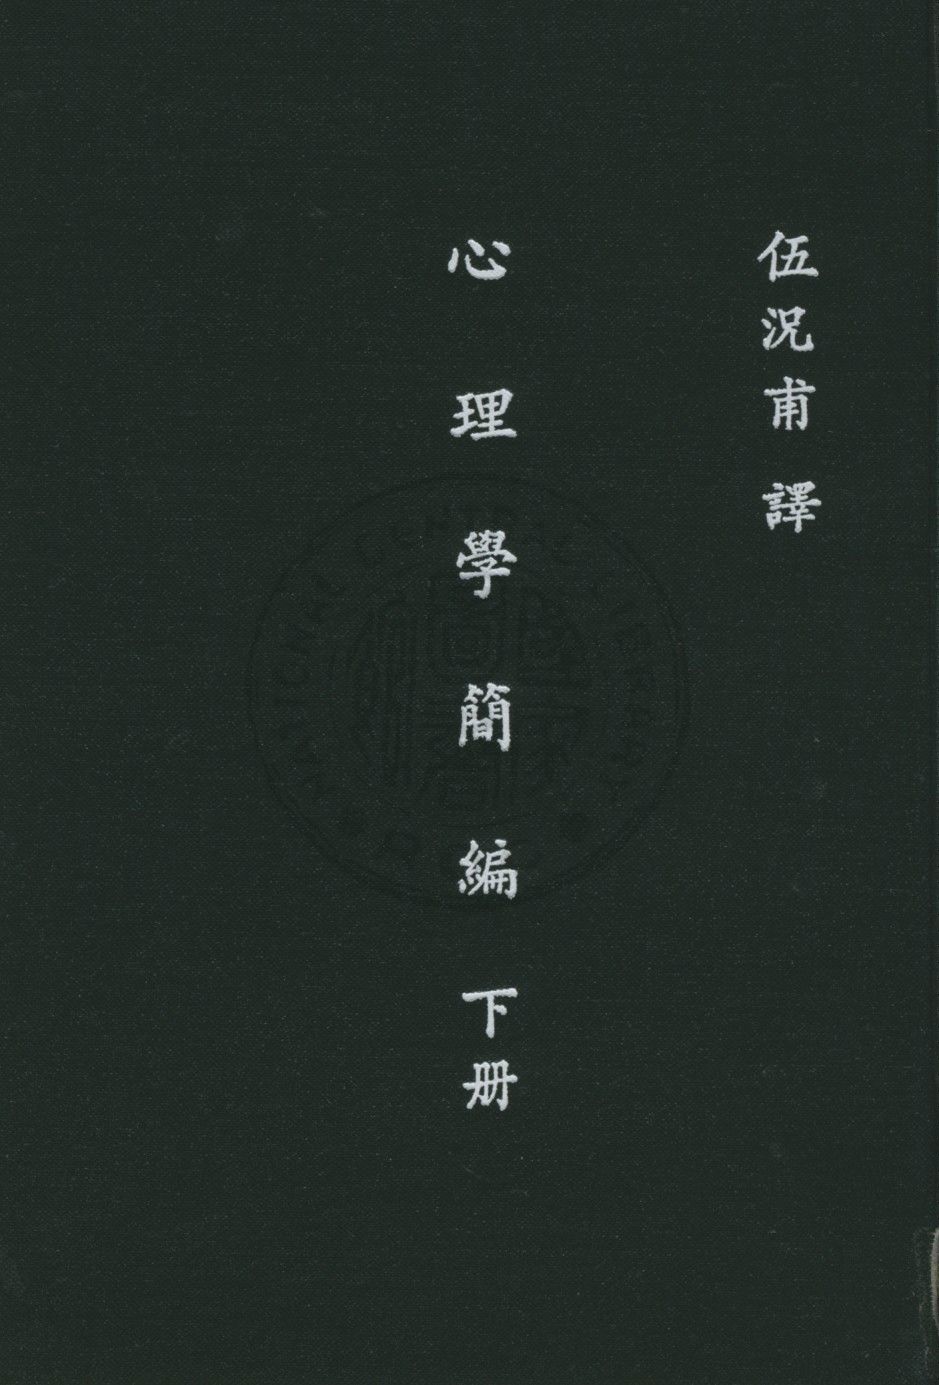 伍況甫 譯
心理學簡編 下册